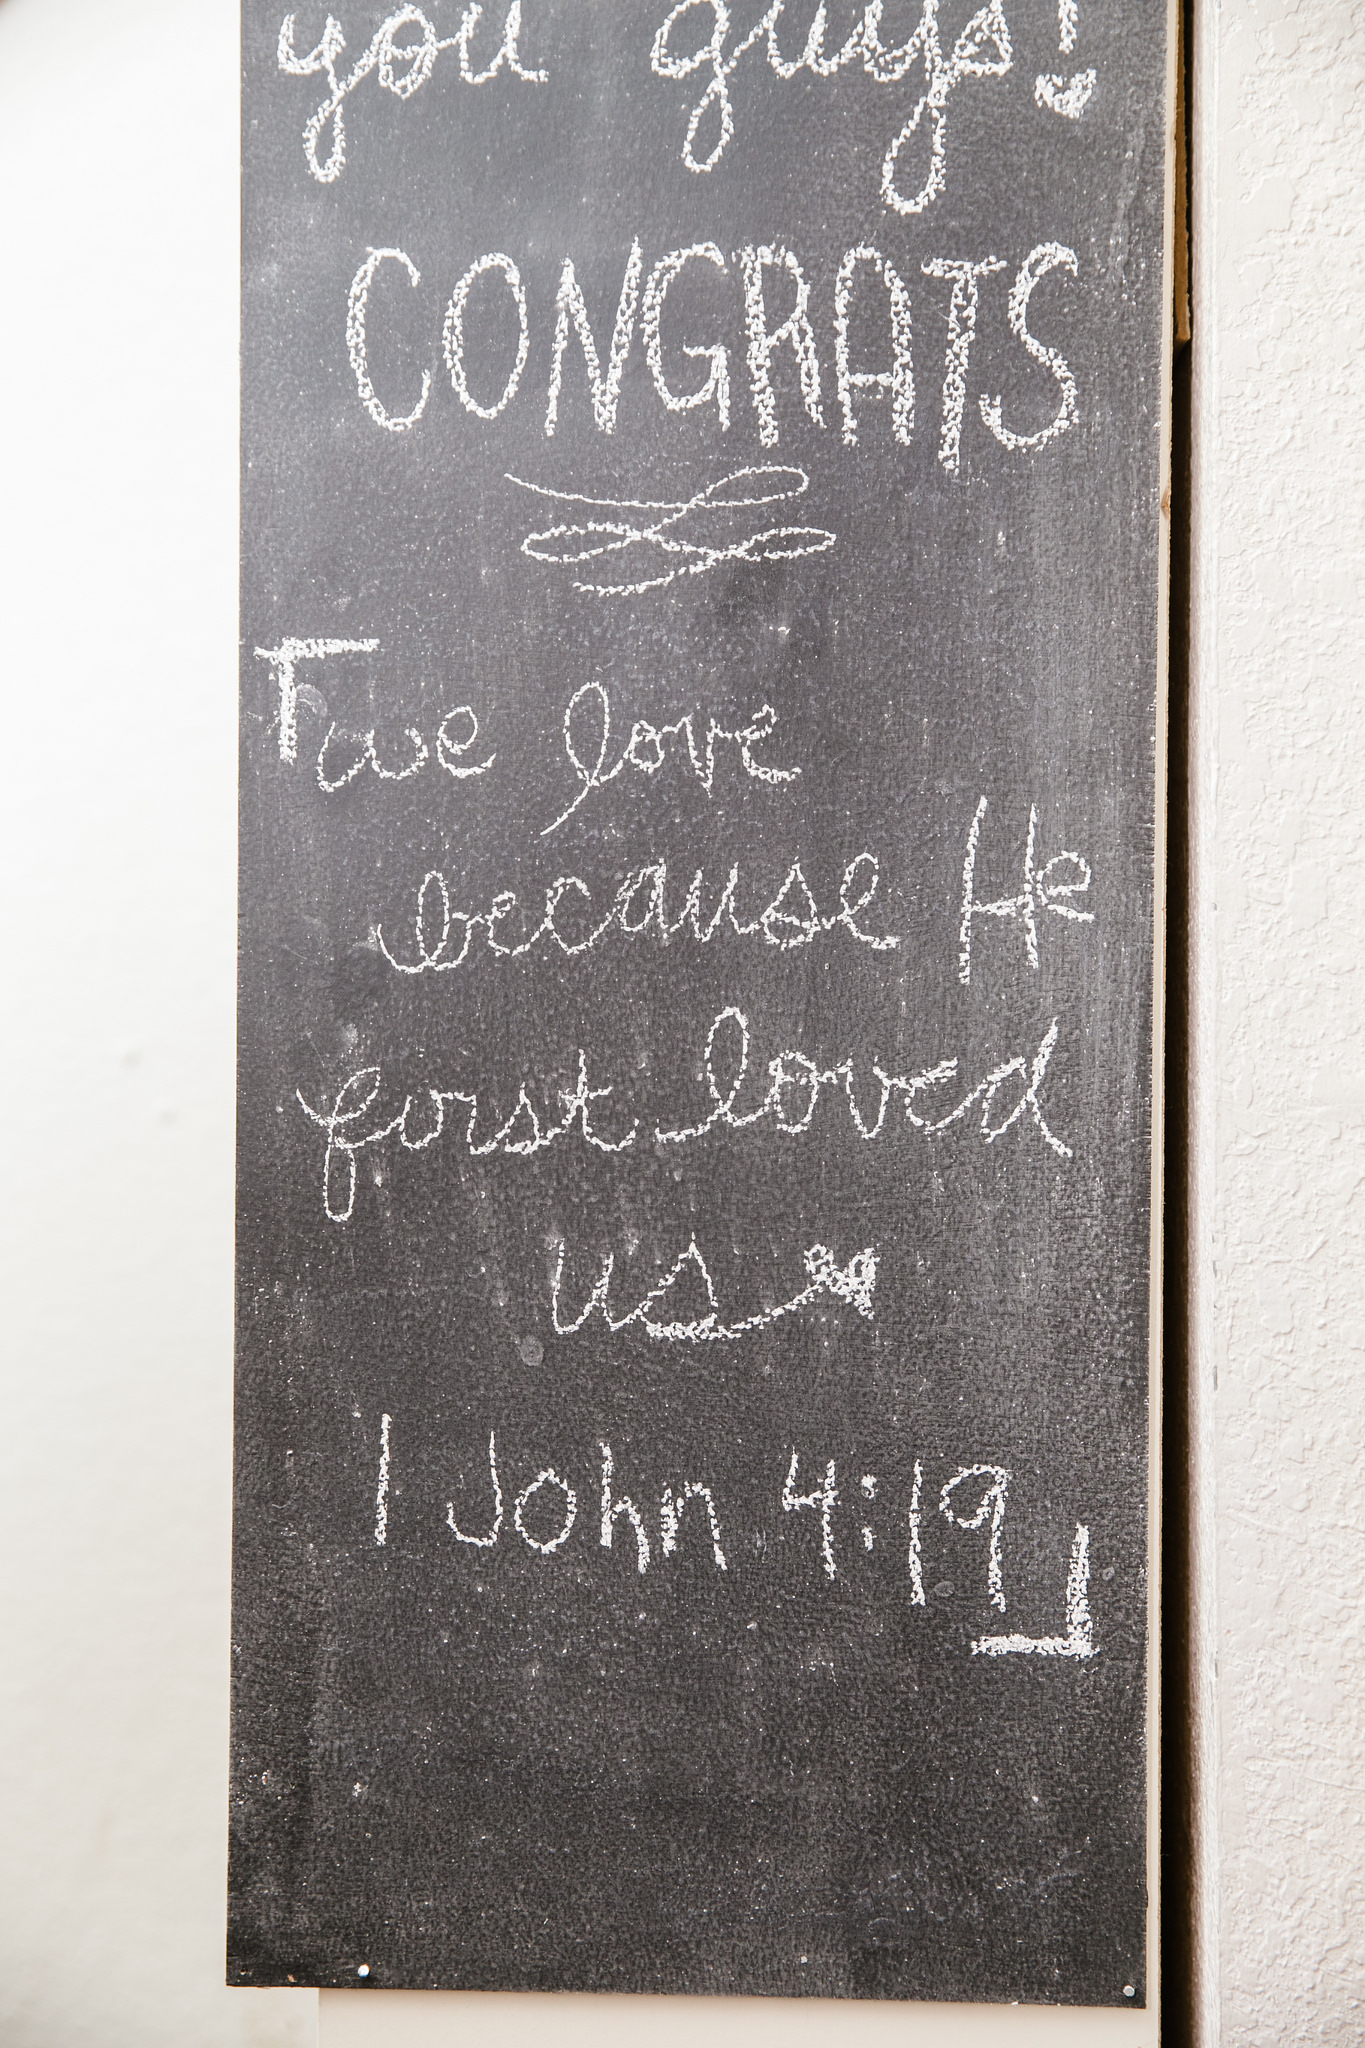 you guys!
CONGRATS
we love
because He
first loved
us
1 John 4:19